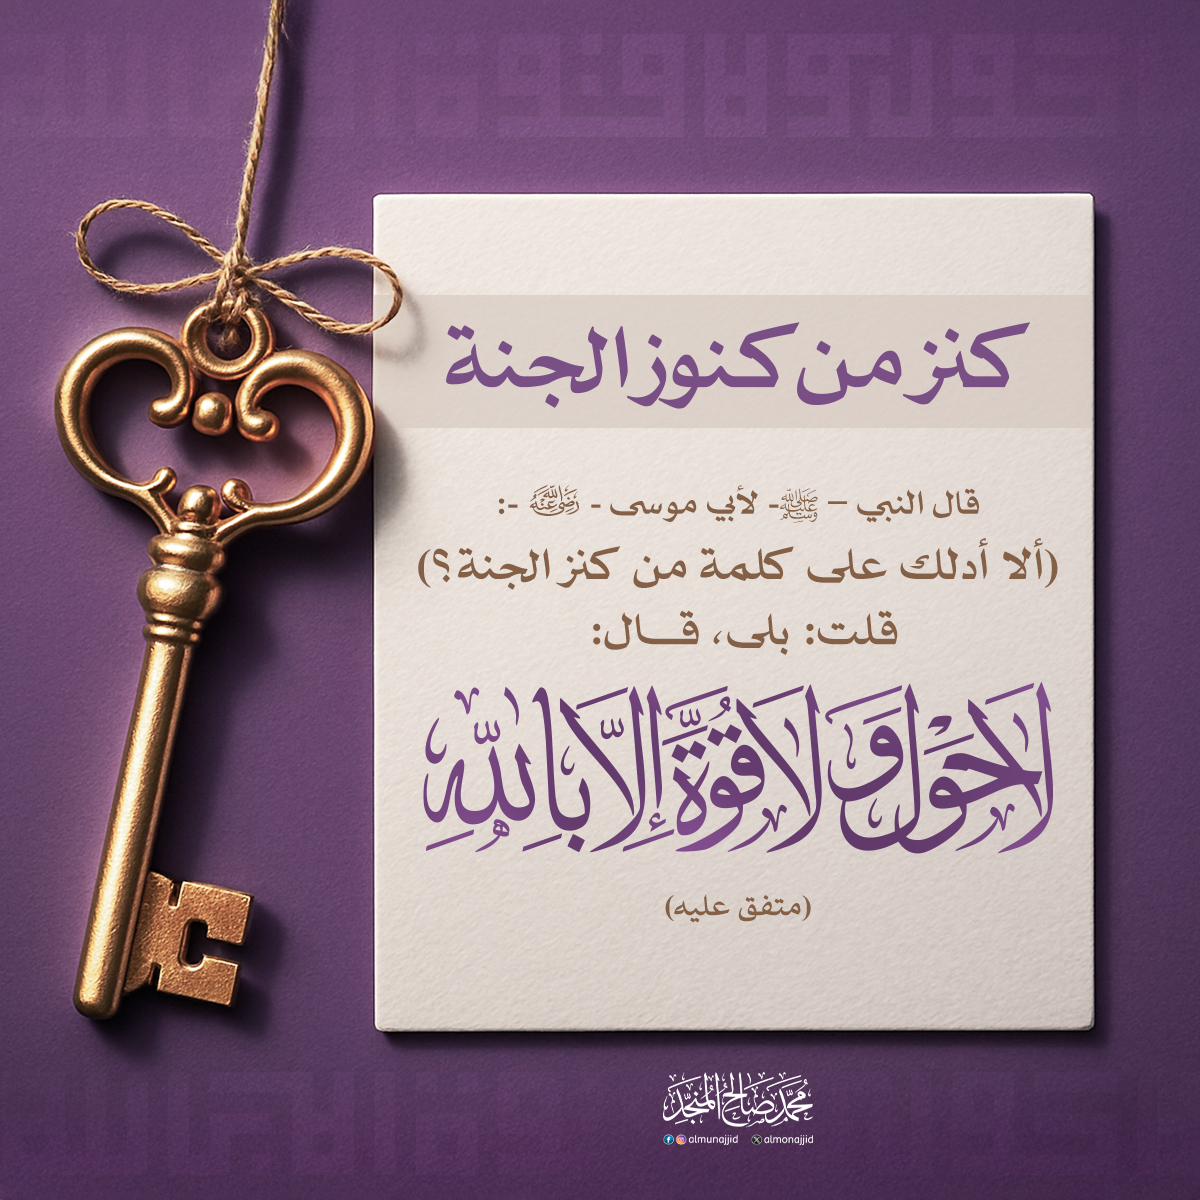 كنز من كنوز الجنة
قال النبي – ﷺ- لأبي موسى - رضي الله عنه -:
(ألا أدلك على كلمة من كنز الجنة؟)
قلت: بلى، قــال:
لَا حَوْلَ وَلَا قُوَّةَ إِلَّا بِاللَّهِ
(متفق عليه)
محمد صالح المنجد
almunajjid almonajjid